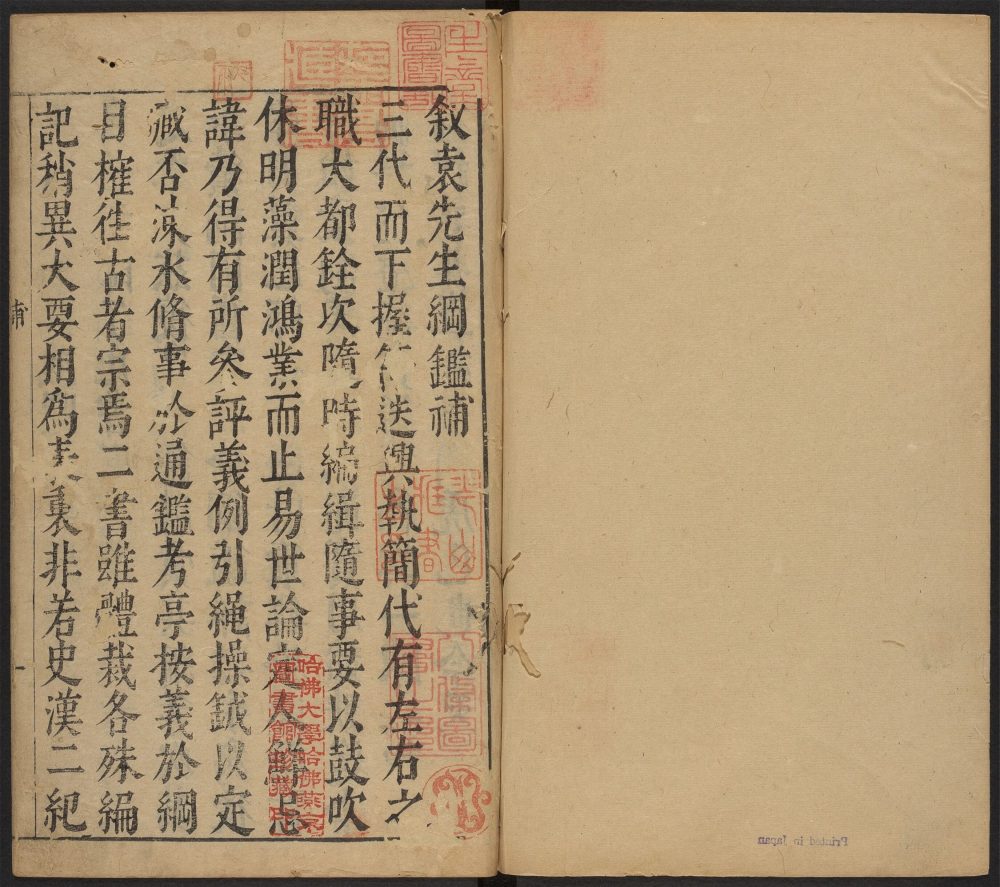 叙袁先生綱鑑補
三代而下握迭興執簡代有左右之
職大都銓次隨時編緝隨事要以鼓吹
休明藻潤鴻業而止易世論定人鮮忌
諱乃得有所矣評義例引繩操鉞以定
臧否涑水脩事於通鑑考亭按義於綱
目搉往古者宗焉二書雖體裁各殊編
記稍異大要相為表裏非若史漢二紀
哈佛大學哈佛燕京
圖書館珍藏印
Printed in Japan